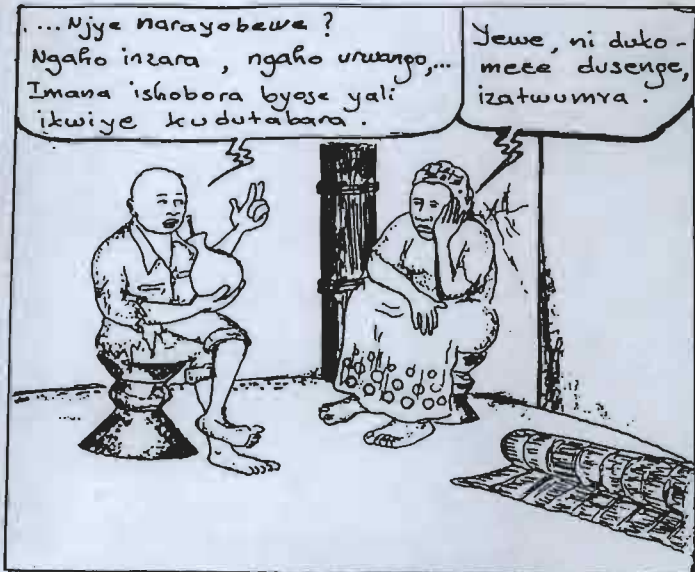 ....Njye narayobewe ?
Ngaho inzara , ngaho urwango,...
Imana ishobora byose yali
ikwiye kudutabara.
Yewe, ni duko-
meze dusenge,
izatwumva.